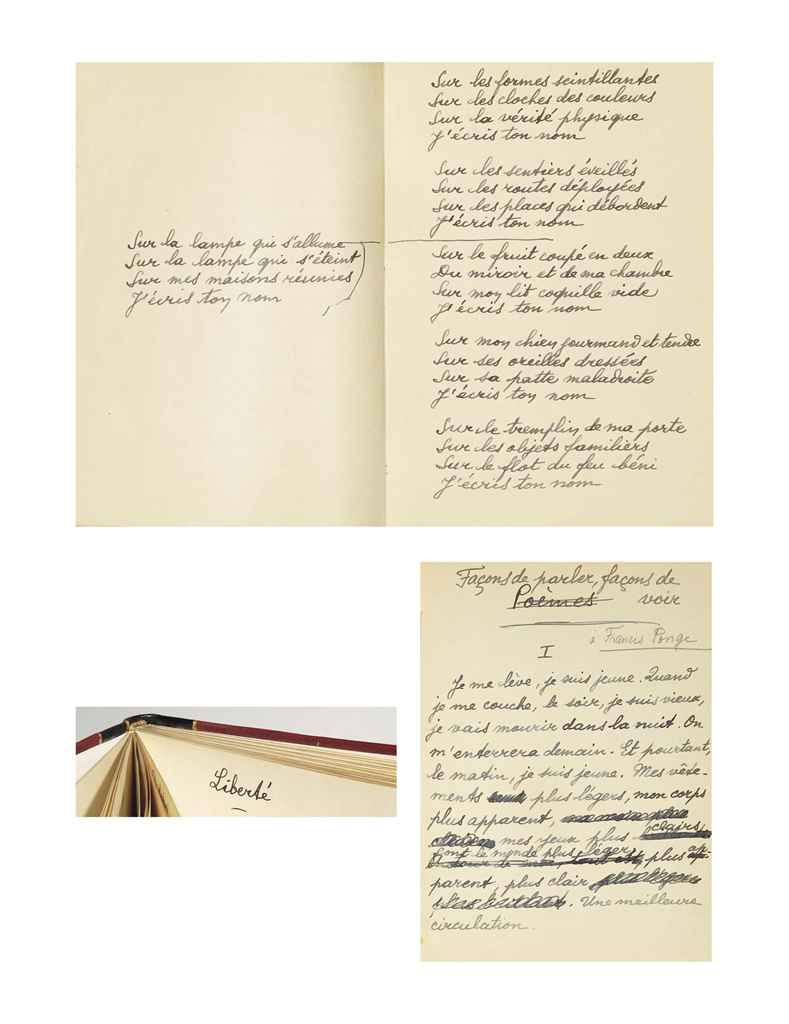 Sur la lampe qui s'allume
Sur la lampe qui s'éteint
Sur mes maisons réunies
J'écris ton nom
Sur les formes scintillantes
Sur les cloches des couleurs
Sur la vérité physique
J'écris ton nom
Sur les sentiers éveillés
Sur les routes déployées
Sur les places qui débordent
J'écris ton nom
Sur le fruit coupé en deux
Du miroir et de ma chambre
Sur mon lit coquille vide
J'écris ton nom
Sur mon chien gourmand et tendre
Sur ses oreilles dressées
Sur sa patte maladroite
J'écris ton nom
Sur le tremplin de ma porte
Sur les objets familiers
Sur le flot du feu béni
J'écris ton nom
Liberté
Façons de parler, façons de
Poèmes voir
à Francis Ponge
I
Je me lève, je suis jeune. Quand
je me couche, le soir, je suis vieux,
je vais mourir dans la nuit. On
m'enterrera demain. Et pourtant,
le matin, je suis jeune. Mes vête-
ments plus légers, mon corps
plus apparent,
mes yeux plus clairs
Sont le monde plus léger, plus ap-
parent, plus clair
. Une meilleure
circulation.